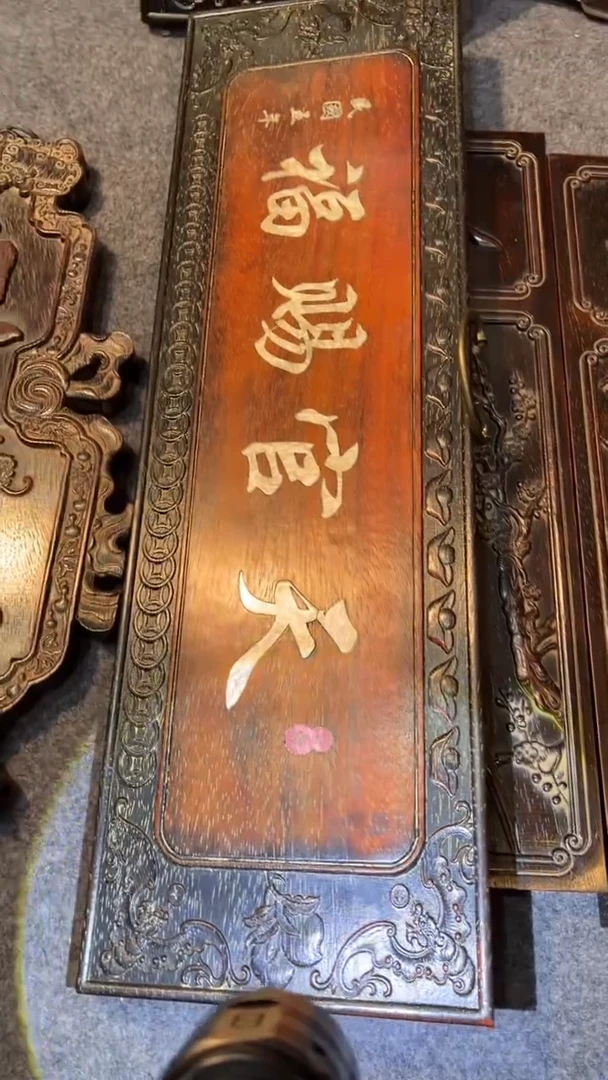 天官賜福
民國五年